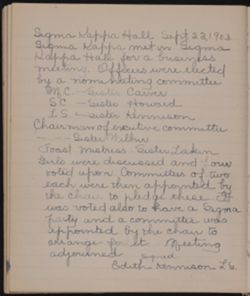 Sigma Kappa Hall Sept 23, 1903
Sigma Kappa met in Sigma
Kappa Hall for a business
meeting. Officers were elected
by a nominating committee
M.C. - Sister Carver
S.C. - Sister Howard
L.S. - Sister Kennison
Chairman of executive committee
- - - Sister Wilbur
Toast Mistress Sister Lakin
Girls were discussed and four
voted upon. Committee of two
each were then appointed by
the chair to pledge these. It
was voted also to have a Sigma
party and a committee was
appointed by the chair to
arrange for it. Meeting
adjourned signed
Edith Kennison L.S.